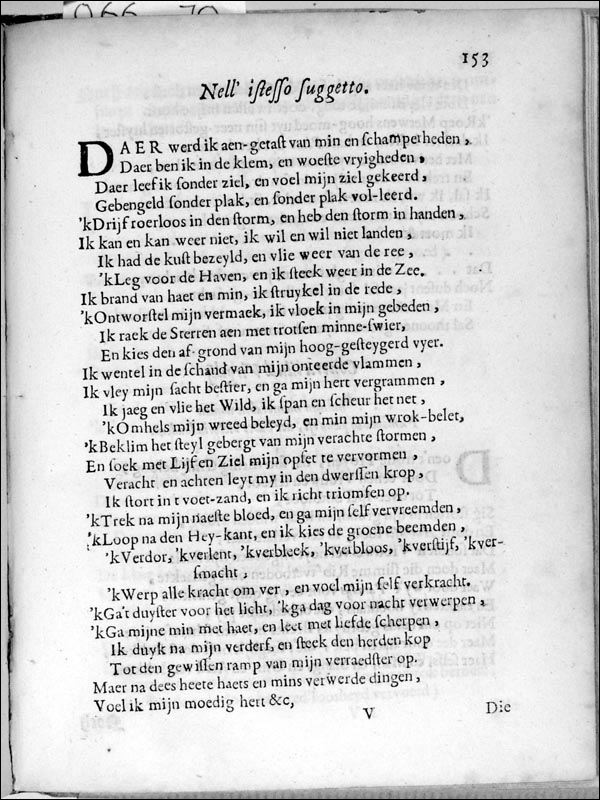 066 70
153
Nell' iſteſſo ſuggetto.
DAER werd ik aen-getaſt van min en ſchamperheden,
Daer ben ik in de klem, en woeſte vryigheden,
Daer leef ik ſonder ziel, en voel mijn ziel gekeerd,
Gebengeld ſonder plak, en ſonder plak vol-leerd.
'kDrijf roerloos in den ſtorm, en heb den ſtorm in handen,
Ik kan en kan weer niet, ik wil en wil niet landen,
Ik had de kuſt bezeyld, en vlie weer van de ree,
'kLeg voor de Haven, en ik ſteek weer in de Zee.
Ik brand van haet en min, ik ſtruykel in de rede,
'kOntworſtel mijn vermaek, ik vloek in mijn gebeden,
Ik raek de Sterren aen met trotſen minne-ſwier,
En kies den af-grond van mijn hoog-geſteygerd vyer.
Ik wentel in de ſchand van mijn onteerde vlammen,
Ik vley mijn ſacht beſtier, en ga mijn hert vergrammen,
Ik jaeg en vlie het Wild, ik ſpan en ſcheur het net,
'kOmhels mijn wreed beleyd, en min mijn wrok-belet,
'kBeklim het ſteyl gebergt van mijn verachte ſtormen,
En ſoek met Lijf en Ziel mijn opſet te vervormen,
Veracht en achten leyt my in den dwerſſen krop,
Ik ſtort in t voet-zand, en ik richt triomfen op.
'kTrek na mijn naeſte bloed, en ga mijn ſelf vervreemden,
'kLoop na den Hey-kant, en ik kies de groene beemden,
'kVerdor, 'kverlent, 'kverbleek, 'kverbloos, 'kverſtijf, 'kver-
ſmacht,
'kWerp alle kracht om ver, en voel mijn ſelf verkracht.
'kGa't duyſter voor het licht, 'kga dag voor nacht verwerpen,
'kGa mijne min met haet, en leet met liefde ſcherpen,
Ik duyk na mijn verderf, en ſteek den herden kop
Tot den gewiſſen ramp van mijn verraedſter op.
Maer na dees heete haets en mins verwerde dingen,
Voel ik mijn moedig hert &c,
V
Die